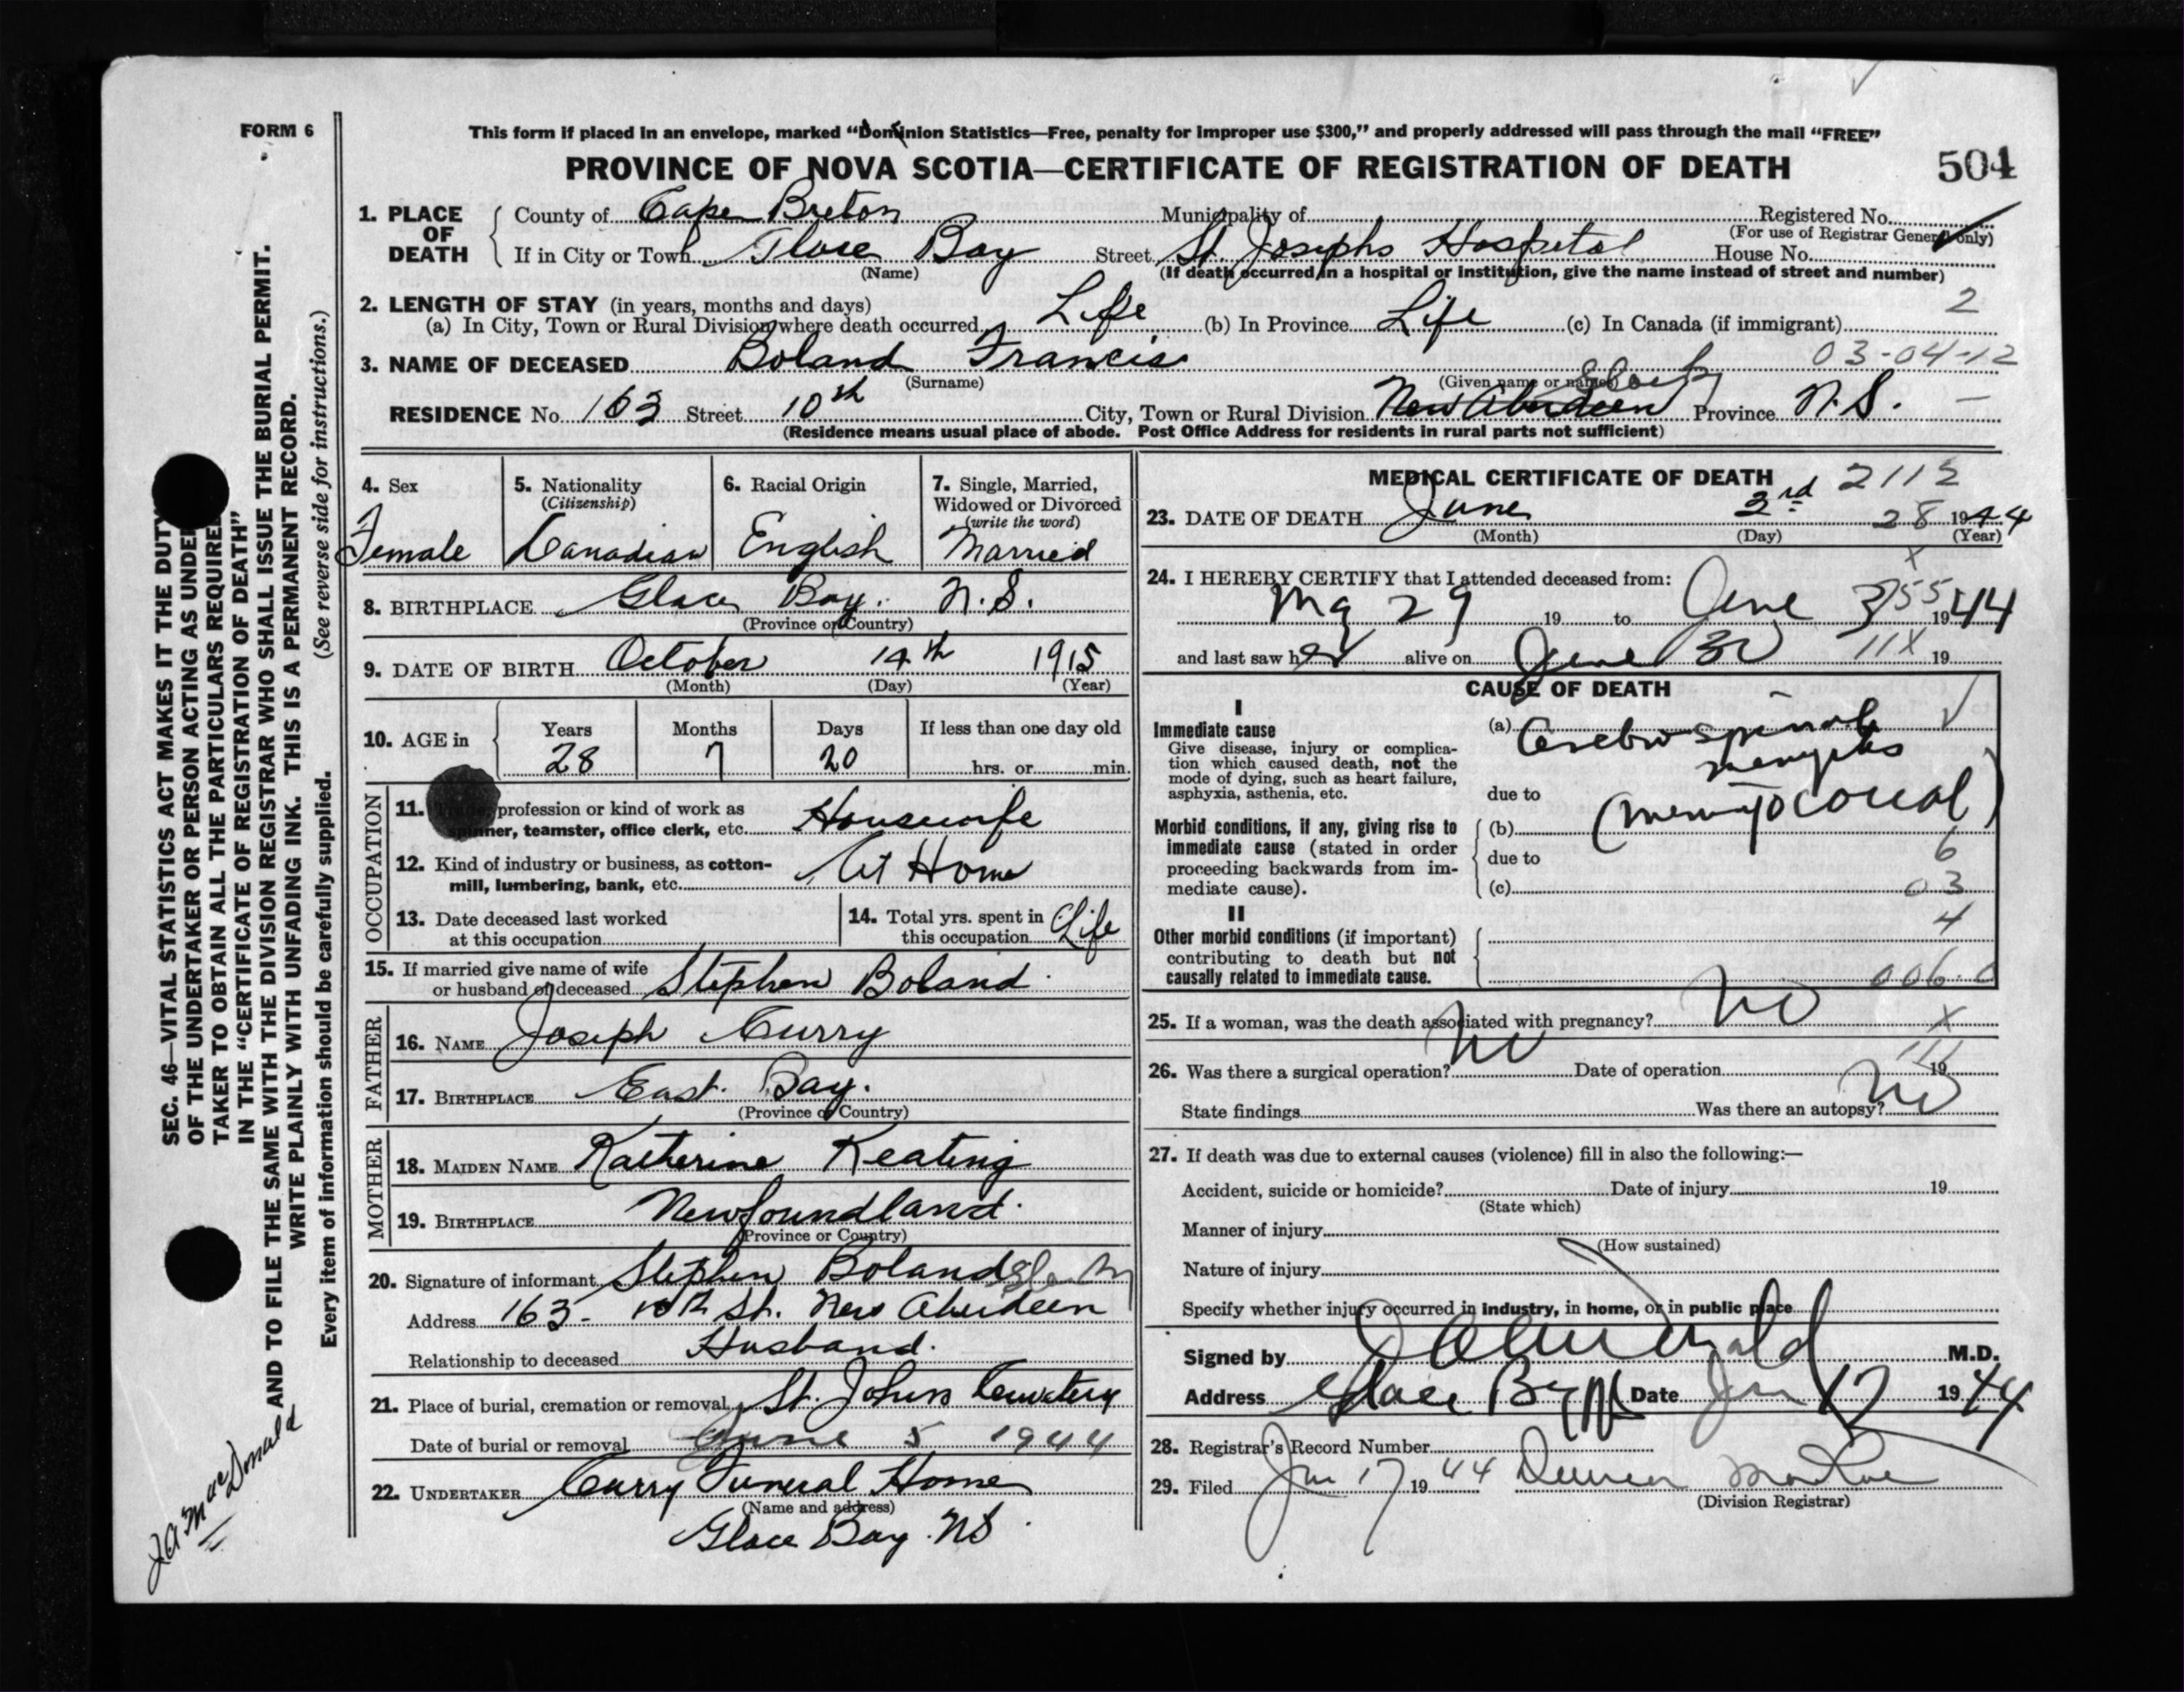 FORM 6
This form if placed in an envelope, marked “Dominion Statistics—Free, penalty for improper use $300,” and properly addressed will pass through the mail “FREE”
PROVINCE OF NOVA SCOTIA—CERTIFICATE OF REGISTRATION OF DEATH
504
1. PLACE OF DEATH
County of Cape Breton Municipality of Registered No.
(For use of Registrar General only)
If in City or Town Glace Bay Street St. Josephs Hospital House No.
(Name) (If death occurred in a hospital or institution, give the name instead of street and number)
2. LENGTH OF STAY (in years, months and days) 2
(a) In City, Town or Rural Division where death occurred Life (b) In Province Life (c) In Canada (if immigrant)
3. NAME OF DECEASED Boland Francis 03-04-12
(Surname) (Given name or names)
RESIDENCE No. 163 Street 10th City, Town or Rural Division New Aberdeen Province N.S. —
(Residence means usual place of abode. Post Office Address for residents in rural parts not sufficient)
4. Sex
Female
5. Nationality
(Citizenship)
Canadian
6. Racial Origin
English
7. Single, Married,
Widowed or Divorced
(write the word)
Married
8. BIRTHPLACE Glace Bay. N.S.
(Province or Country)
9. DATE OF BIRTH October 14th 1915
(Month) (Day) (Year)
10. AGE in
Years Months Days If less than one day old
28 7 20 hrs. or min.
OCCUPATION
11. profession or kind of work as
spinner, teamster, office clerk, etc. Housewife
12. Kind of industry or business, as cotton-
mill, lumbering, bank, etc. At Home
13. Date deceased last worked
at this occupation
14. Total yrs. spent in
this occupation Life
15. If married give name of wife
or husband of deceased Stephen Boland
FATHER
16. NAME Joseph Curry
17. BIRTHPLACE East Bay.
(Province or Country)
MOTHER
18. MAIDEN NAME Katherine Keating
19. BIRTHPLACE Newfoundland.
(Province or Country)
20. Signature of informant Stephen Boland
Address 163- 10th St. New Aberdeen
Relationship to deceased Husband.
21. Place of burial, cremation or removal St. Johns Cemetery
Date of burial or removal June 5 1944
22. UNDERTAKER Curry Funeral Home
(Name and address)
Glace Bay. NS.
MEDICAL CERTIFICATE OF DEATH 2112
23. DATE OF DEATH June 3rd 28 1944
(Month) (Day) (Year)
24. I HEREBY CERTIFY that I attended deceased from:
29 19 to June 3 1944
and last saw her alive on June 19
CAUSE OF DEATH
I
Immediate cause
Give disease, injury or complica-
tion which caused death, not the
mode of dying, such as heart failure,
asphyxia, asthenia, etc.
(a) Cerebro spinal
due to
Morbid conditions, if any, giving rise to
immediate cause (stated in order
proceeding backwards from im-
mediate cause).
(b)
due to 6
(c) 03
II 4
Other morbid conditions (if important)
contributing to death but not
causally related to immediate cause.
006.0
25. If a woman, was the death associated with pregnancy? No X
26. Was there a surgical operation? No Date of operation 19
State findings Was there an autopsy? No
27. If death was due to external causes (violence) fill in also the following:—
Accident, suicide or homicide? Date of injury 19
(State which)
Manner of injury
(How sustained)
Nature of injury
Specify whether injury occurred in industry, in home, or in public place
Signed by M.D.
Address Glace Bay Date 17 1944
28. Registrar's Record Number
29. Filed 17 1944
(Division Registrar)
SEC. 46—VITAL STATISTICS ACT MAKES IT THE DUTY
OF THE UNDERTAKER OR PERSON ACTING AS UNDER
TAKER TO OBTAIN ALL THE PARTICULARS REQUIRED
IN THE “CERTIFICATE OF REGISTRATION OF DEATH”
AND TO FILE THE SAME WITH THE DIVISION REGISTRAR WHO SHALL ISSUE THE BURIAL PERMIT.
WRITE PLAINLY WITH UNFADING INK. THIS IS A PERMANENT RECORD.
Every item of information should be carefully supplied. (See reverse side for instructions.)
JA MacDonald